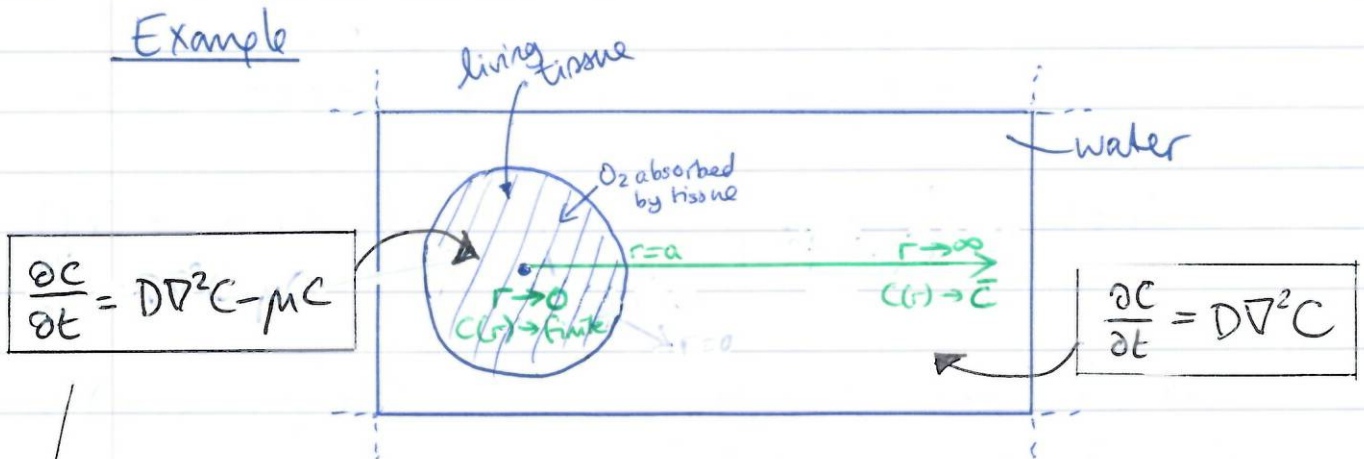 Example
living
tissue
water
O₂ absorbed
by tissue
r=a
r→∞
C(r)→C̄
r→0
C(r)→finite
∂C/∂t = D∇²C-μC
∂C/∂t = D∇²C